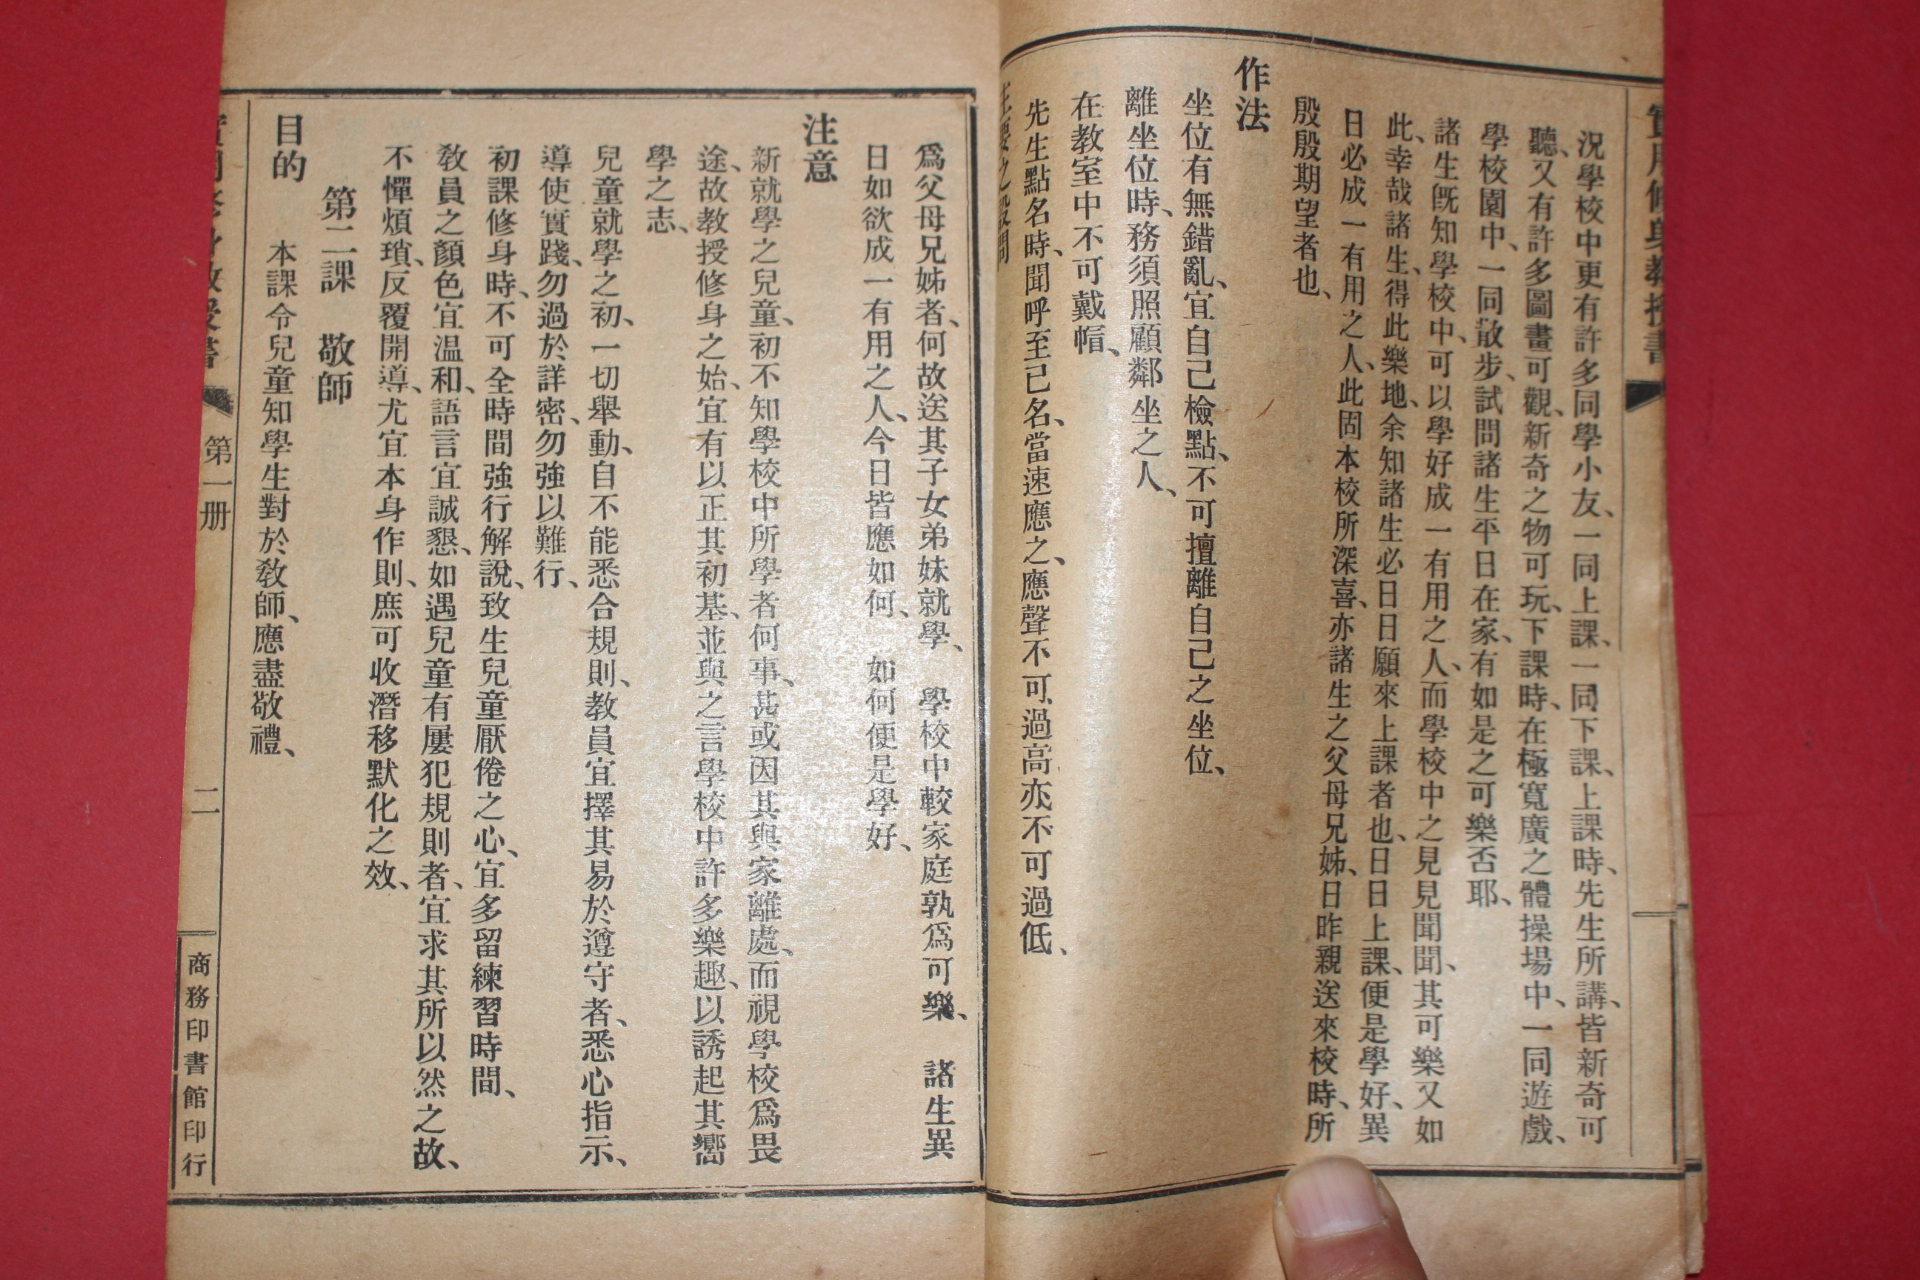 實用修身教授書
況學校中更有許多同學小友、一同上課、一同下課、上課時、先生所講、皆新奇可
聽、又有許多圖畫可觀、新奇之物可玩、下課時、在極寬廣之體操場中、一同遊戲、
學校園中、一同散步、試問諸生平日在家、有如是之可樂否耶、
諸生既知學校中、可以學好成一有用之人、而學校中之見見聞聞、其可樂又如
此、幸哉諸生、得此樂地、余知諸生必日日願來上課者也、日日上課、便是學好、異
日必成一有用之人、此固本校所深喜、亦諸生之父母兄姊、日昨親送來校時、所
殷殷期望者也、
作法
坐位有無錯亂、宜自己檢點、不可擅離自己之坐位、
離坐位時、務須照顧鄰坐之人、
在教室中不可戴帽、
先生點名時、聞呼至己名、當速應之、應聲不可過高、亦不可過低、
主要之設問
爲父母兄姊者、何故送其子女弟妹就學、 學校中較家庭孰爲可樂、 諸生異
日如欲成一有用之人、今日皆應如何、 如何便是學好、
注意
新就學之兒童、初不知學校中所學者何事、甚或因其與家離處、而視學校爲畏
途、故教授修身之始、宜有以正其初基、並與之言學校中許多樂趣、以誘起其嚮
學之志、
兒童就學之初、一切舉動、自不能悉合規則、教員宜擇其易於遵守者、悉心指示、
導使實踐、勿過於詳密、勿強以難行、
初課修身時、不可全時間強行解說、致生兒童厭倦之心、宜多留練習時間、
教員之顏色宜溫和、語言宜誠懇、如遇兒童有屢犯規則者、宜求其所以然之故、
不憚煩瑣、反覆開導、尤宜本身作則、庶可收潛移默化之效、
第二課 敬師
目的 本課令兒童知學生對於教師、應盡敬禮、
實用修身教授書 第一册 二 商務印書館印行